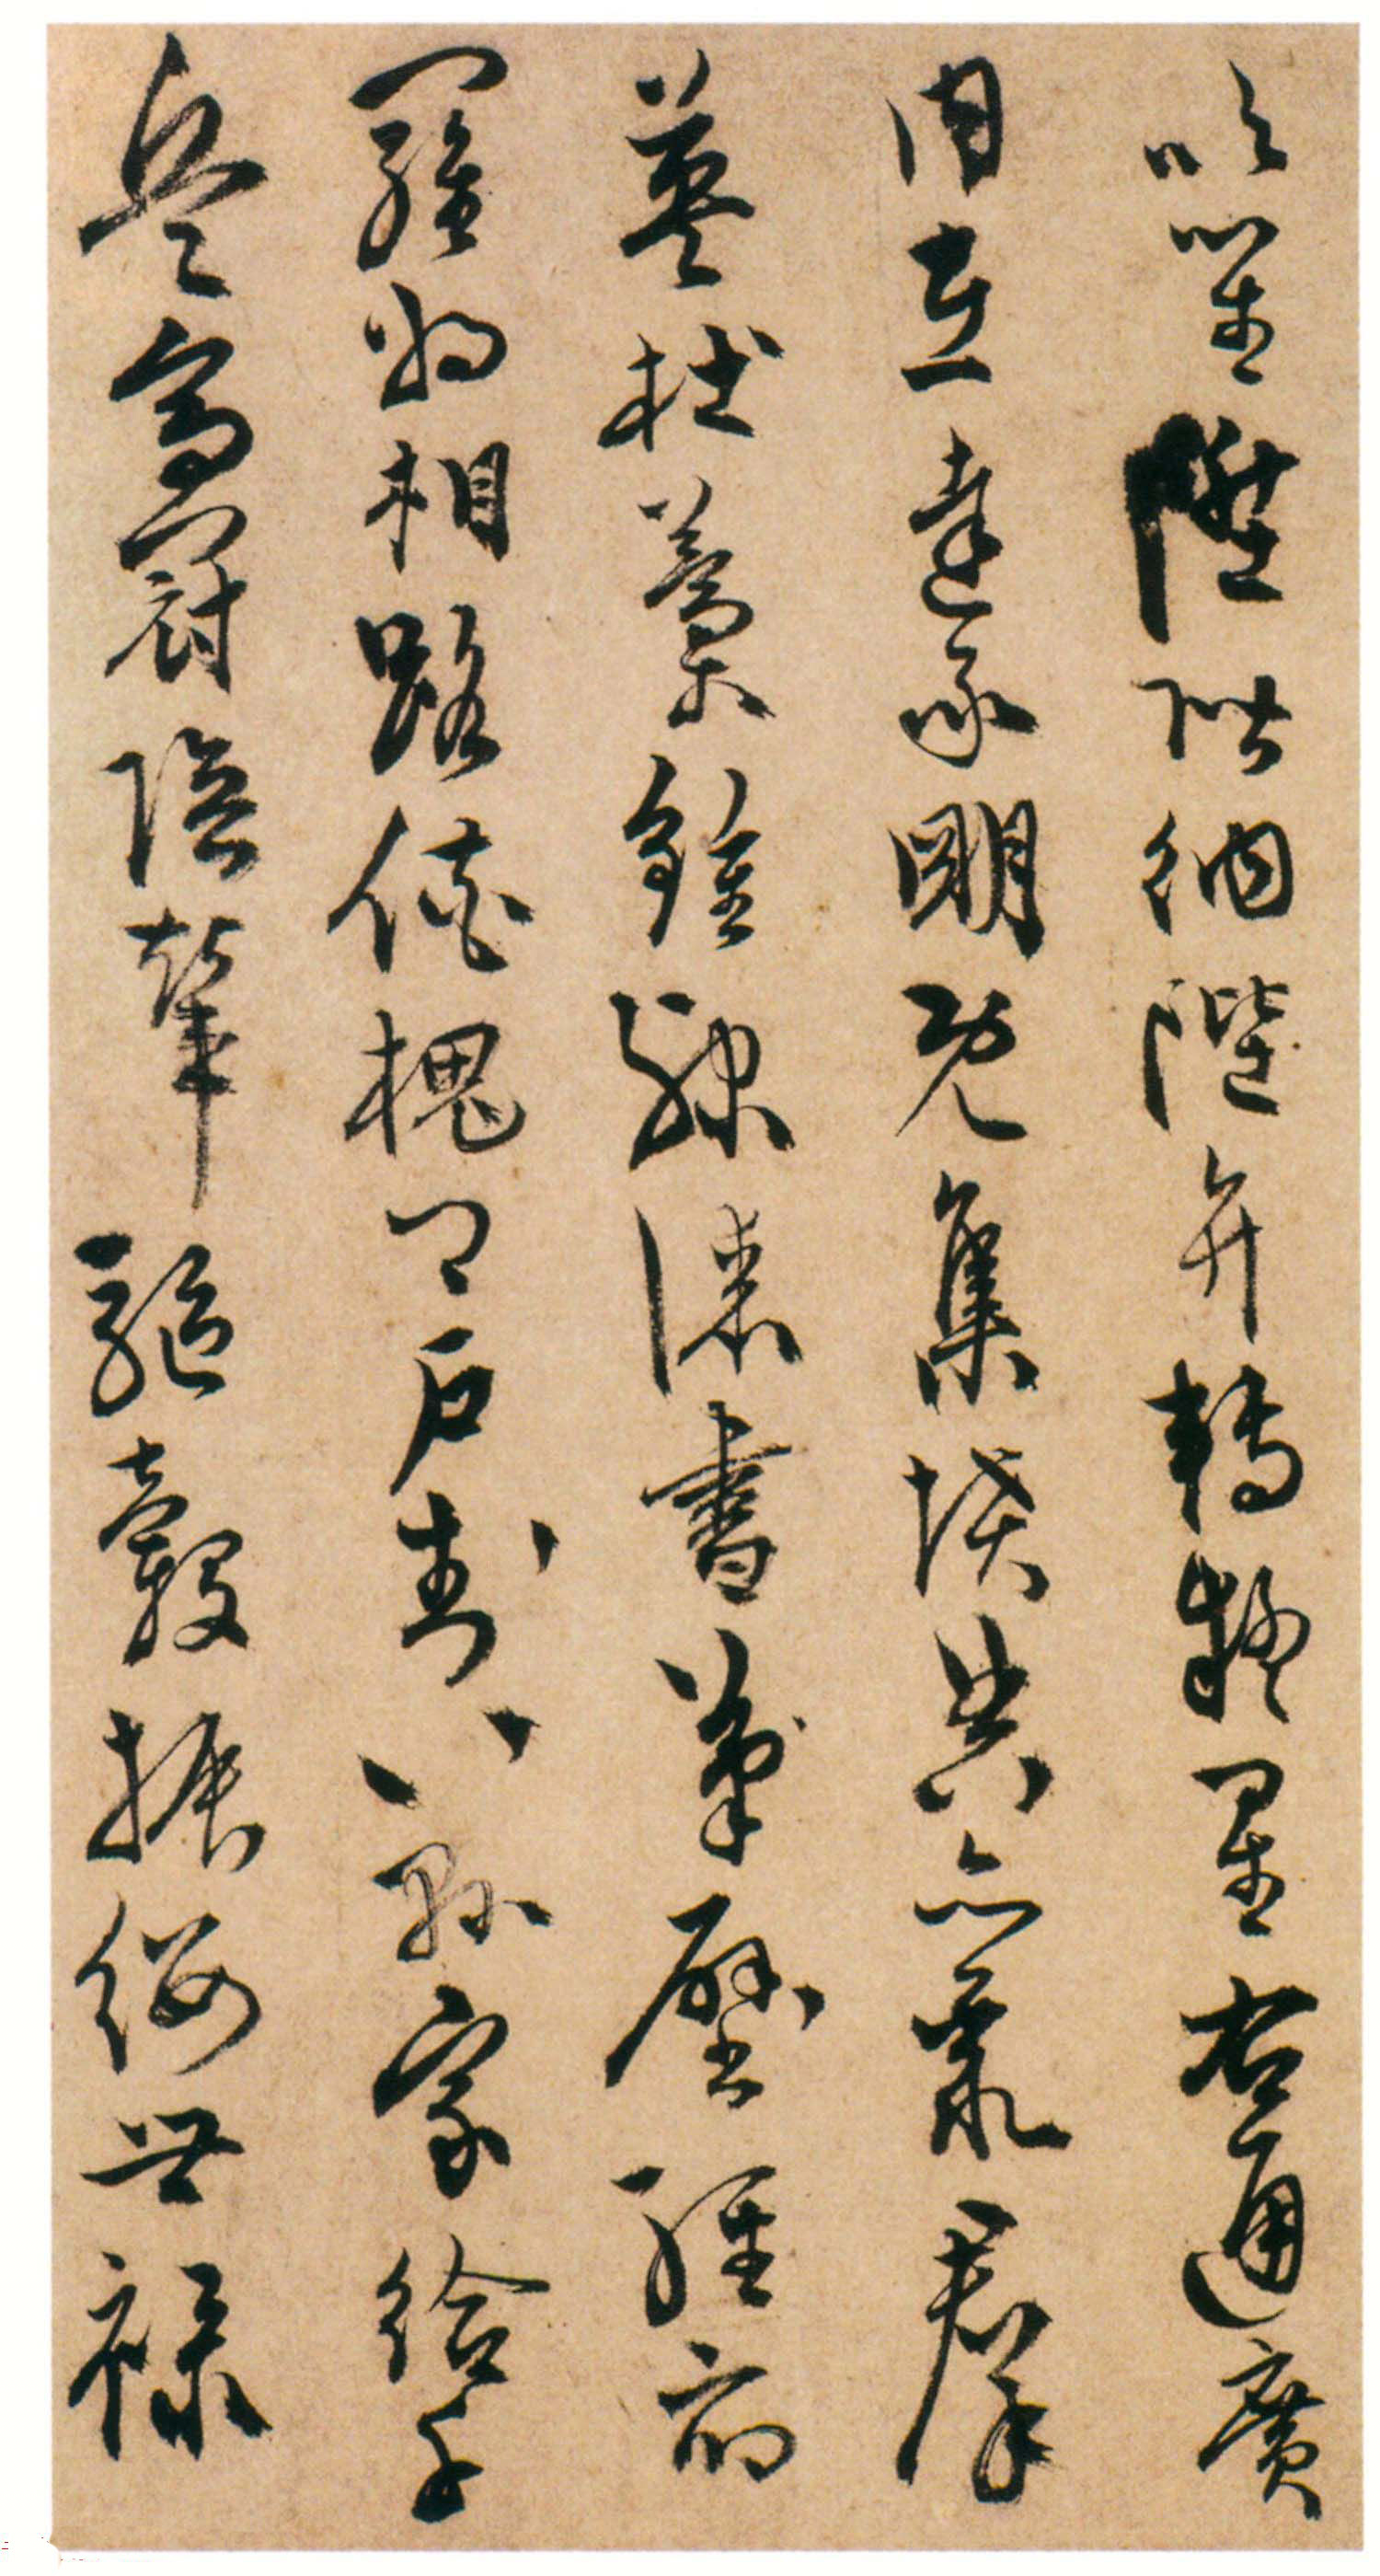 吹笙陞階納陛弁轉疑星右通廣
內左達承明既集墳典亦聚群
英杜藁鍾隸漆書壁經府
羅將相路俠槐卿戶封八縣家給千
兵高冠陪輦驅轂振纓世祿